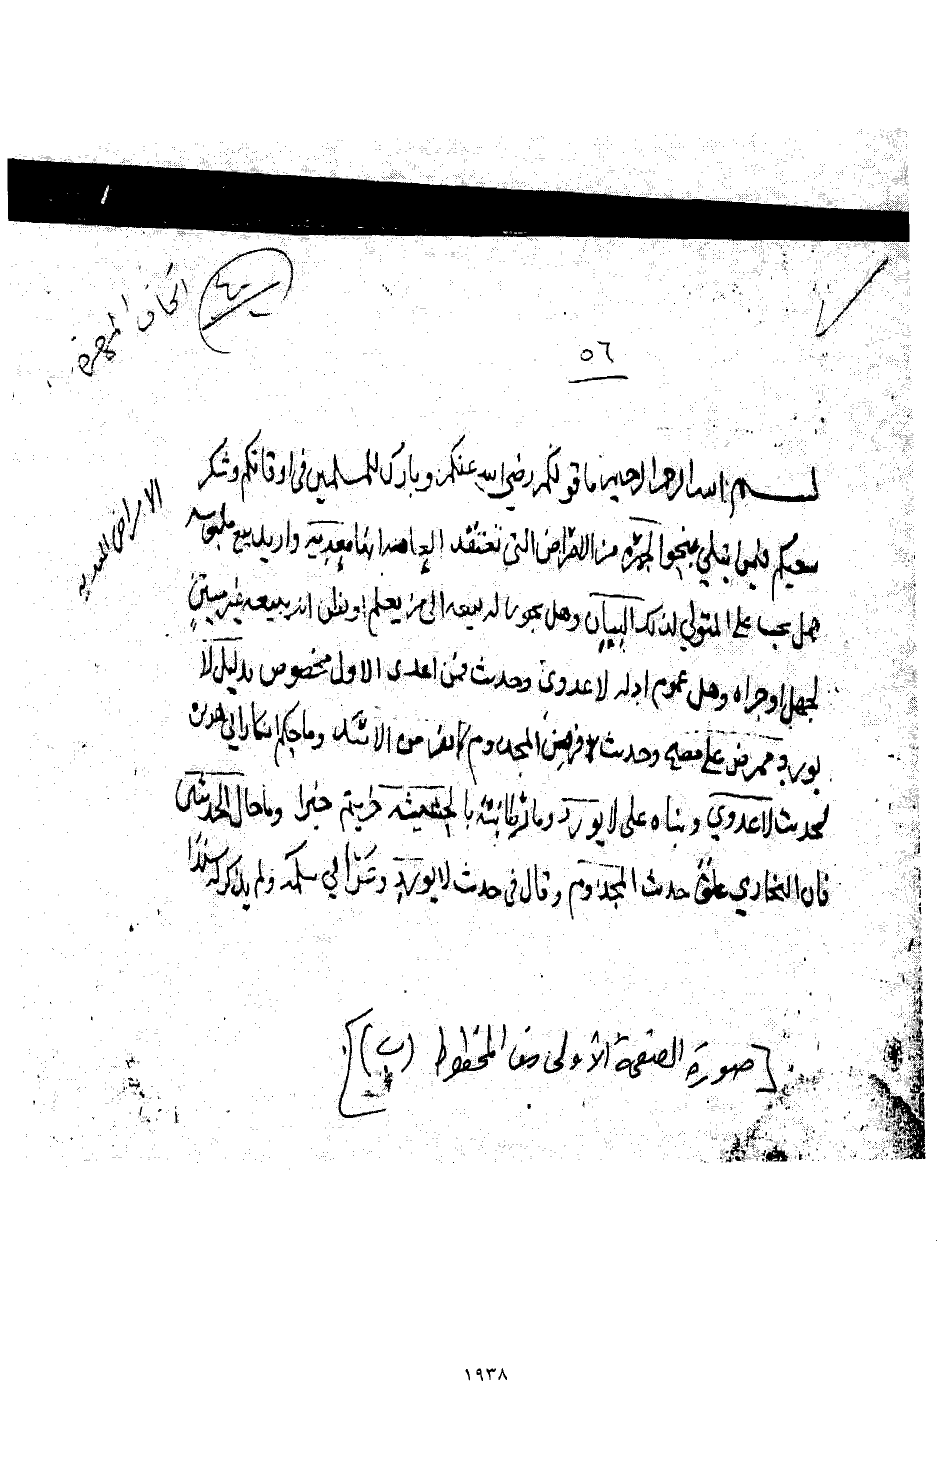 ٤٠
اتحاف المهرة
٥٦
الامراض المعدية
بسم الله الرحمن الرحيم ما قولكم رضي الله عنكم وبارك للمسلمين في اوقاتكم وشكر
سعيكم فيمن ابتلي بنحو الجرة من الامراض التي تعتقد العامة انها معدية واريد بيع ملبوسه
هل يجب على المتولي لذلك البيان وهل يجوز له بيعه الى من يعلم او يظن انه يبيعه غير مبين
لجهل او جراه وهل عموم ادلة لا عدوى وحديث فمن اعدى الاول مخصوص بدليل لا
يورد ممرض على مصح وحديث فر من المجذوم كما تفر من الاسد وما حكم انكار ابي هريرة
لحديث لا عدوى وبناه على لا يورد وما حال الحديثين
فان البخاري علق حديث المجذوم وقال في حديث لا يورد وعن ابي سلمة ولم يذكر له سندا
[صورة الصفحة الأولى من المخطوط (ب)]
١٩٣٨